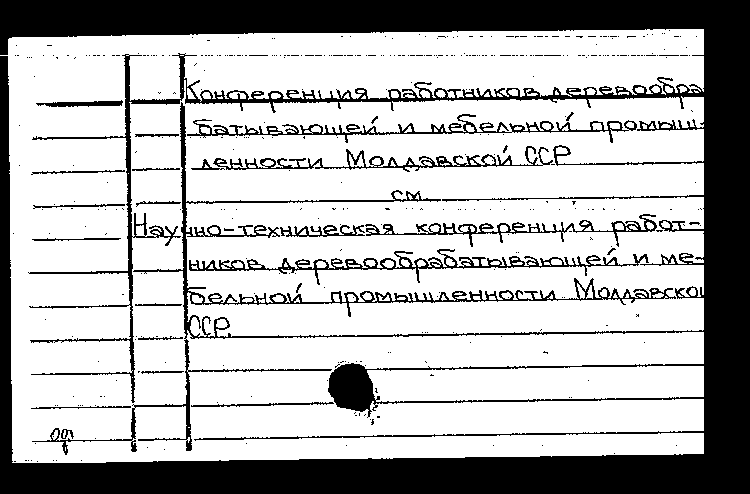 Конференция работников деревообра
батывающей и мебельной промыш-
ленности Молдавской ССР
см.
Научно-техническая конференция работ-
ников деревообрабатывающей и ме-
бельной промышленности Молдавской
ССР.